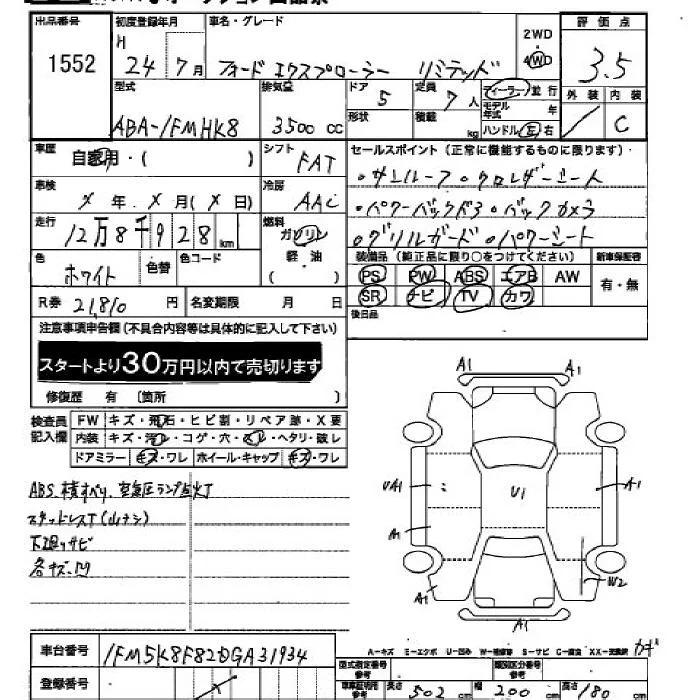 出品番号 初度登録年月 車名・グレード 2WD 評価点
1552 H 24 7月 フォード エクスプローラー リミテッド 4WD 3.5
型式 排気量 ドア 5 定員 7人 ディーラー 並行 外装 内装
ABA-1FMHK8 3500 cc 形状 積載 kg モデル年式 年 ハンドル 左 右 C
車歴 自家用・( ) シフト FAT セールスポイント(正常に機能するものに限ります)
車検 X年 X月(X日) 冷房 AAC ・サンルーフ・クロレザーシート
走行 12万8千928km 燃料 ガソリン ・パワーバックドア・バックカメラ
軽油 ・グリルガード・パワーシート
色 ホワイト 色替 色コード ( ) 装備品(純正品に限り○をつけてください) 新車保証書
PS PW ABS エアB AW 有・無
R券 21,810 円 名変期限 月 日 SR ナビ TV カワ
注意事項申告欄(不具合内容等は具体的に記入して下さい) 後日品
スタートより30万円以内で売切ります
修復歴 有 〔箇所 〕
検査員記入欄 FW キズ・飛石・ヒビ割・リペア跡・X要
内装 キズ・汚レ・コゲ・穴・スレ・ヘタリ・破レ
ドアミラー キズ・ワレ ホイール・キャップ キズ・ワレ
A1 A1
ABS 横すべり 空気圧ランプ点灯
スタッドレスT(山ナシ)
下廻りサビ
各キズ凹
UA1 U1 A1
A1
A1 W2
車台番号 1FM5K8F82DGA31934
A-キズ E-エクボ U-凹み W-補修跡 S-サビ C-腐食 XX-交換済 カギ
登録番号
型式指定番号 参考 類別区分番号 参考
車庫証明用 参考 長さ 502 cm 幅 200 cm 高さ 180 cm